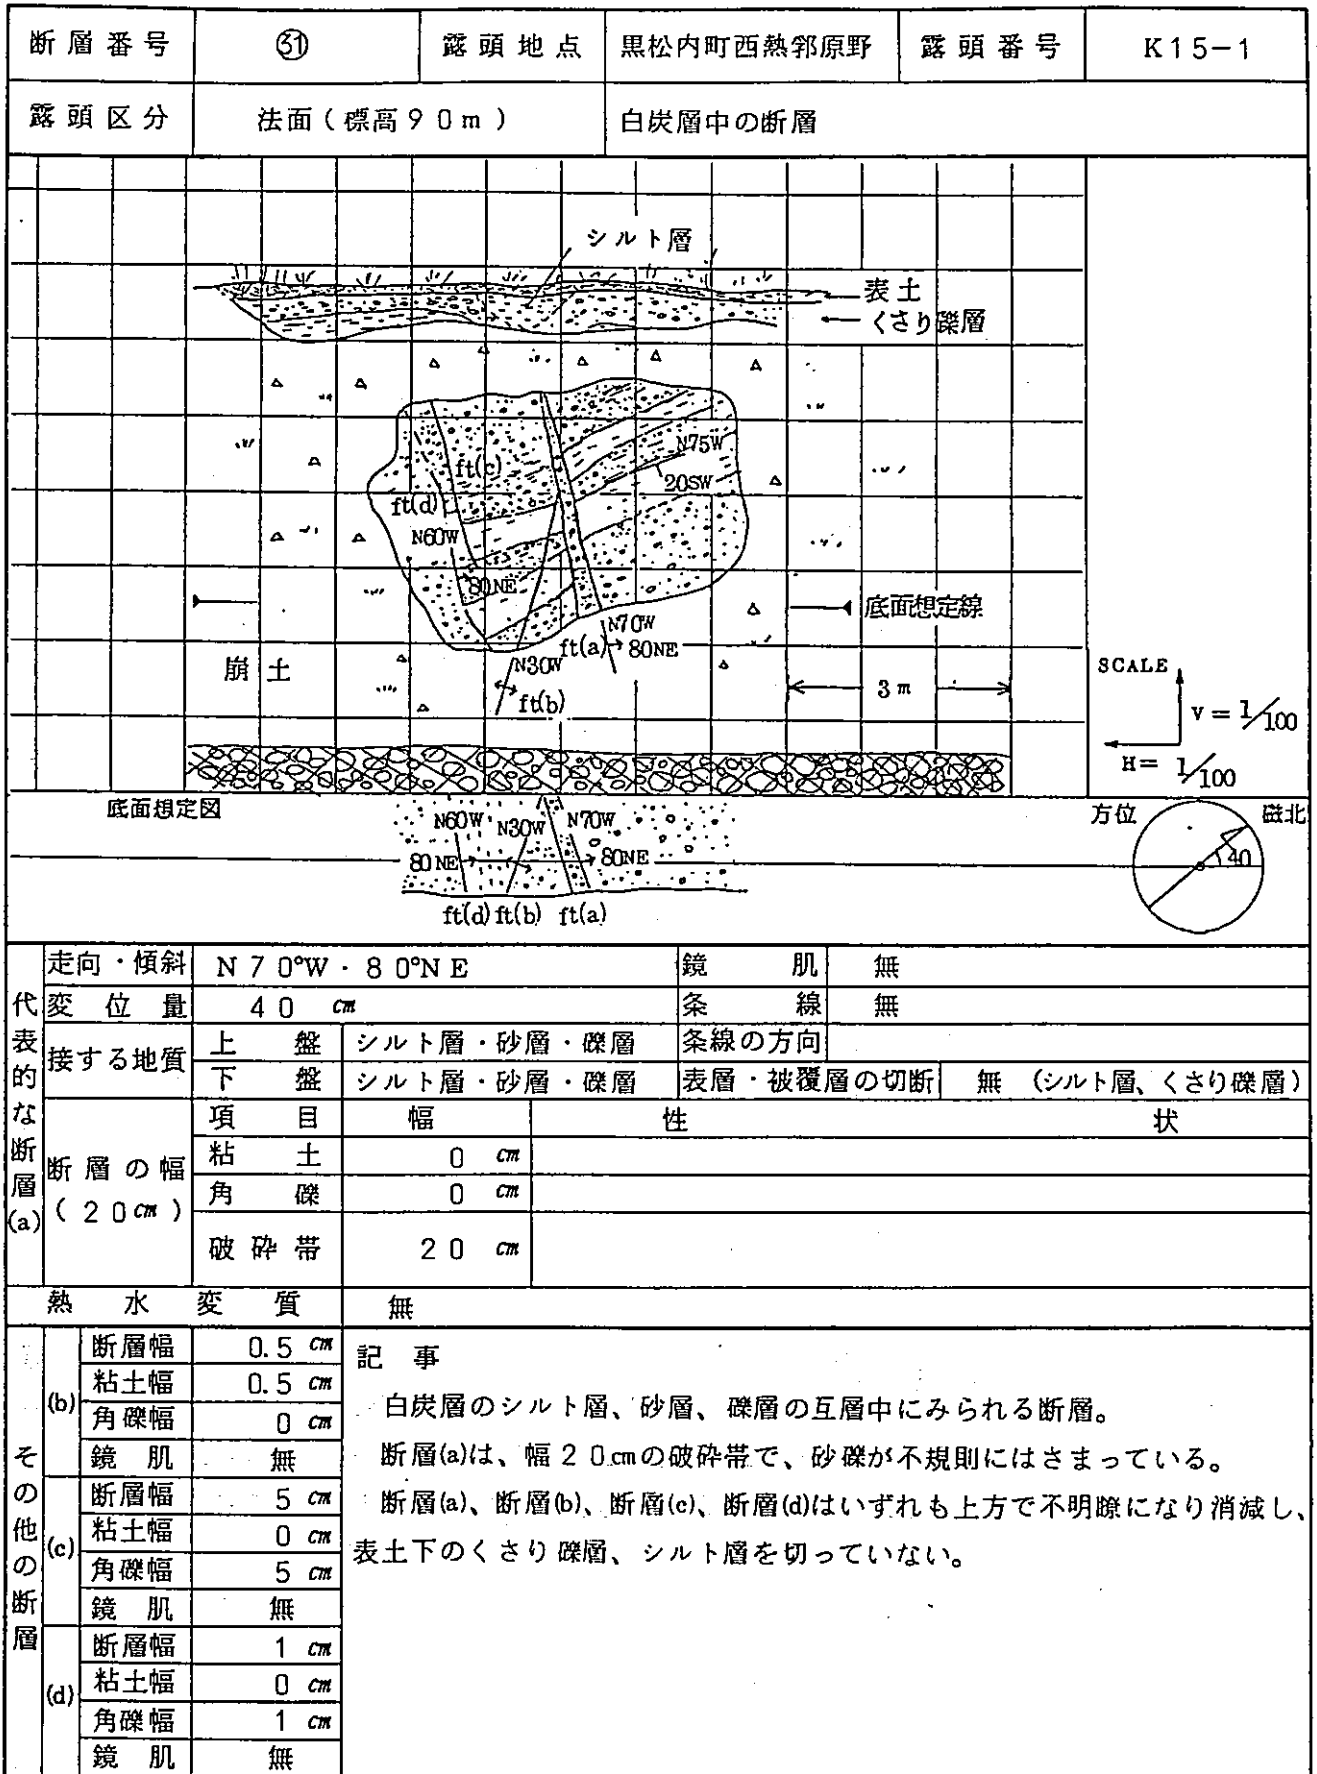 断層番号 ㉛ 露頭地点 黒松内町西熱郛原野 露頭番号 K15-1
露頭区分 法面(標高90m) 白炭層中の断層
シルト層
表土
くさり礫層
N75W
20SW
ft(c)
ft(d)
N60W
80NE
底面想定線
N70W
ft(a) 80NE
N30W
ft(b)
崩土
3m
SCALE
V=1/100
H=1/100
底面想定図
方位 磁北
N60W N30W N70W
80NE 80NE
40
ft(d) ft(b) ft(a)
代表的な断層(a)
走向・傾斜 N70°W・80°NE 鏡肌 無
変位量 40cm 条線 無
接する地質 上盤 シルト層・砂層・礫層 条線の方向
下盤 シルト層・砂層・礫層 表層・被覆層の切断 無(シルト層、くさり礫層)
断層の幅(20cm) 項目 幅 性状
粘土 0cm
角礫 0cm
破砕帯 20cm
熱水変質 無
その他の断層
(b) 断層幅 0.5cm
粘土幅 0.5cm
角礫幅 0cm
鏡肌 無
(c) 断層幅 5cm
粘土幅 0cm
角礫幅 5cm
鏡肌 無
(d) 断層幅 1cm
粘土幅 0cm
角礫幅 1cm
鏡肌 無
記事
白炭層のシルト層、砂層、礫層の互層中にみられる断層。
断層(a)は、幅20cmの破砕帯で、砂礫が不規則にはさまっている。
断層(a)、断層(b)、断層(c)、断層(d)はいずれも上方で不明瞭になり消滅し、
表土下のくさり礫層、シルト層を切っていない。